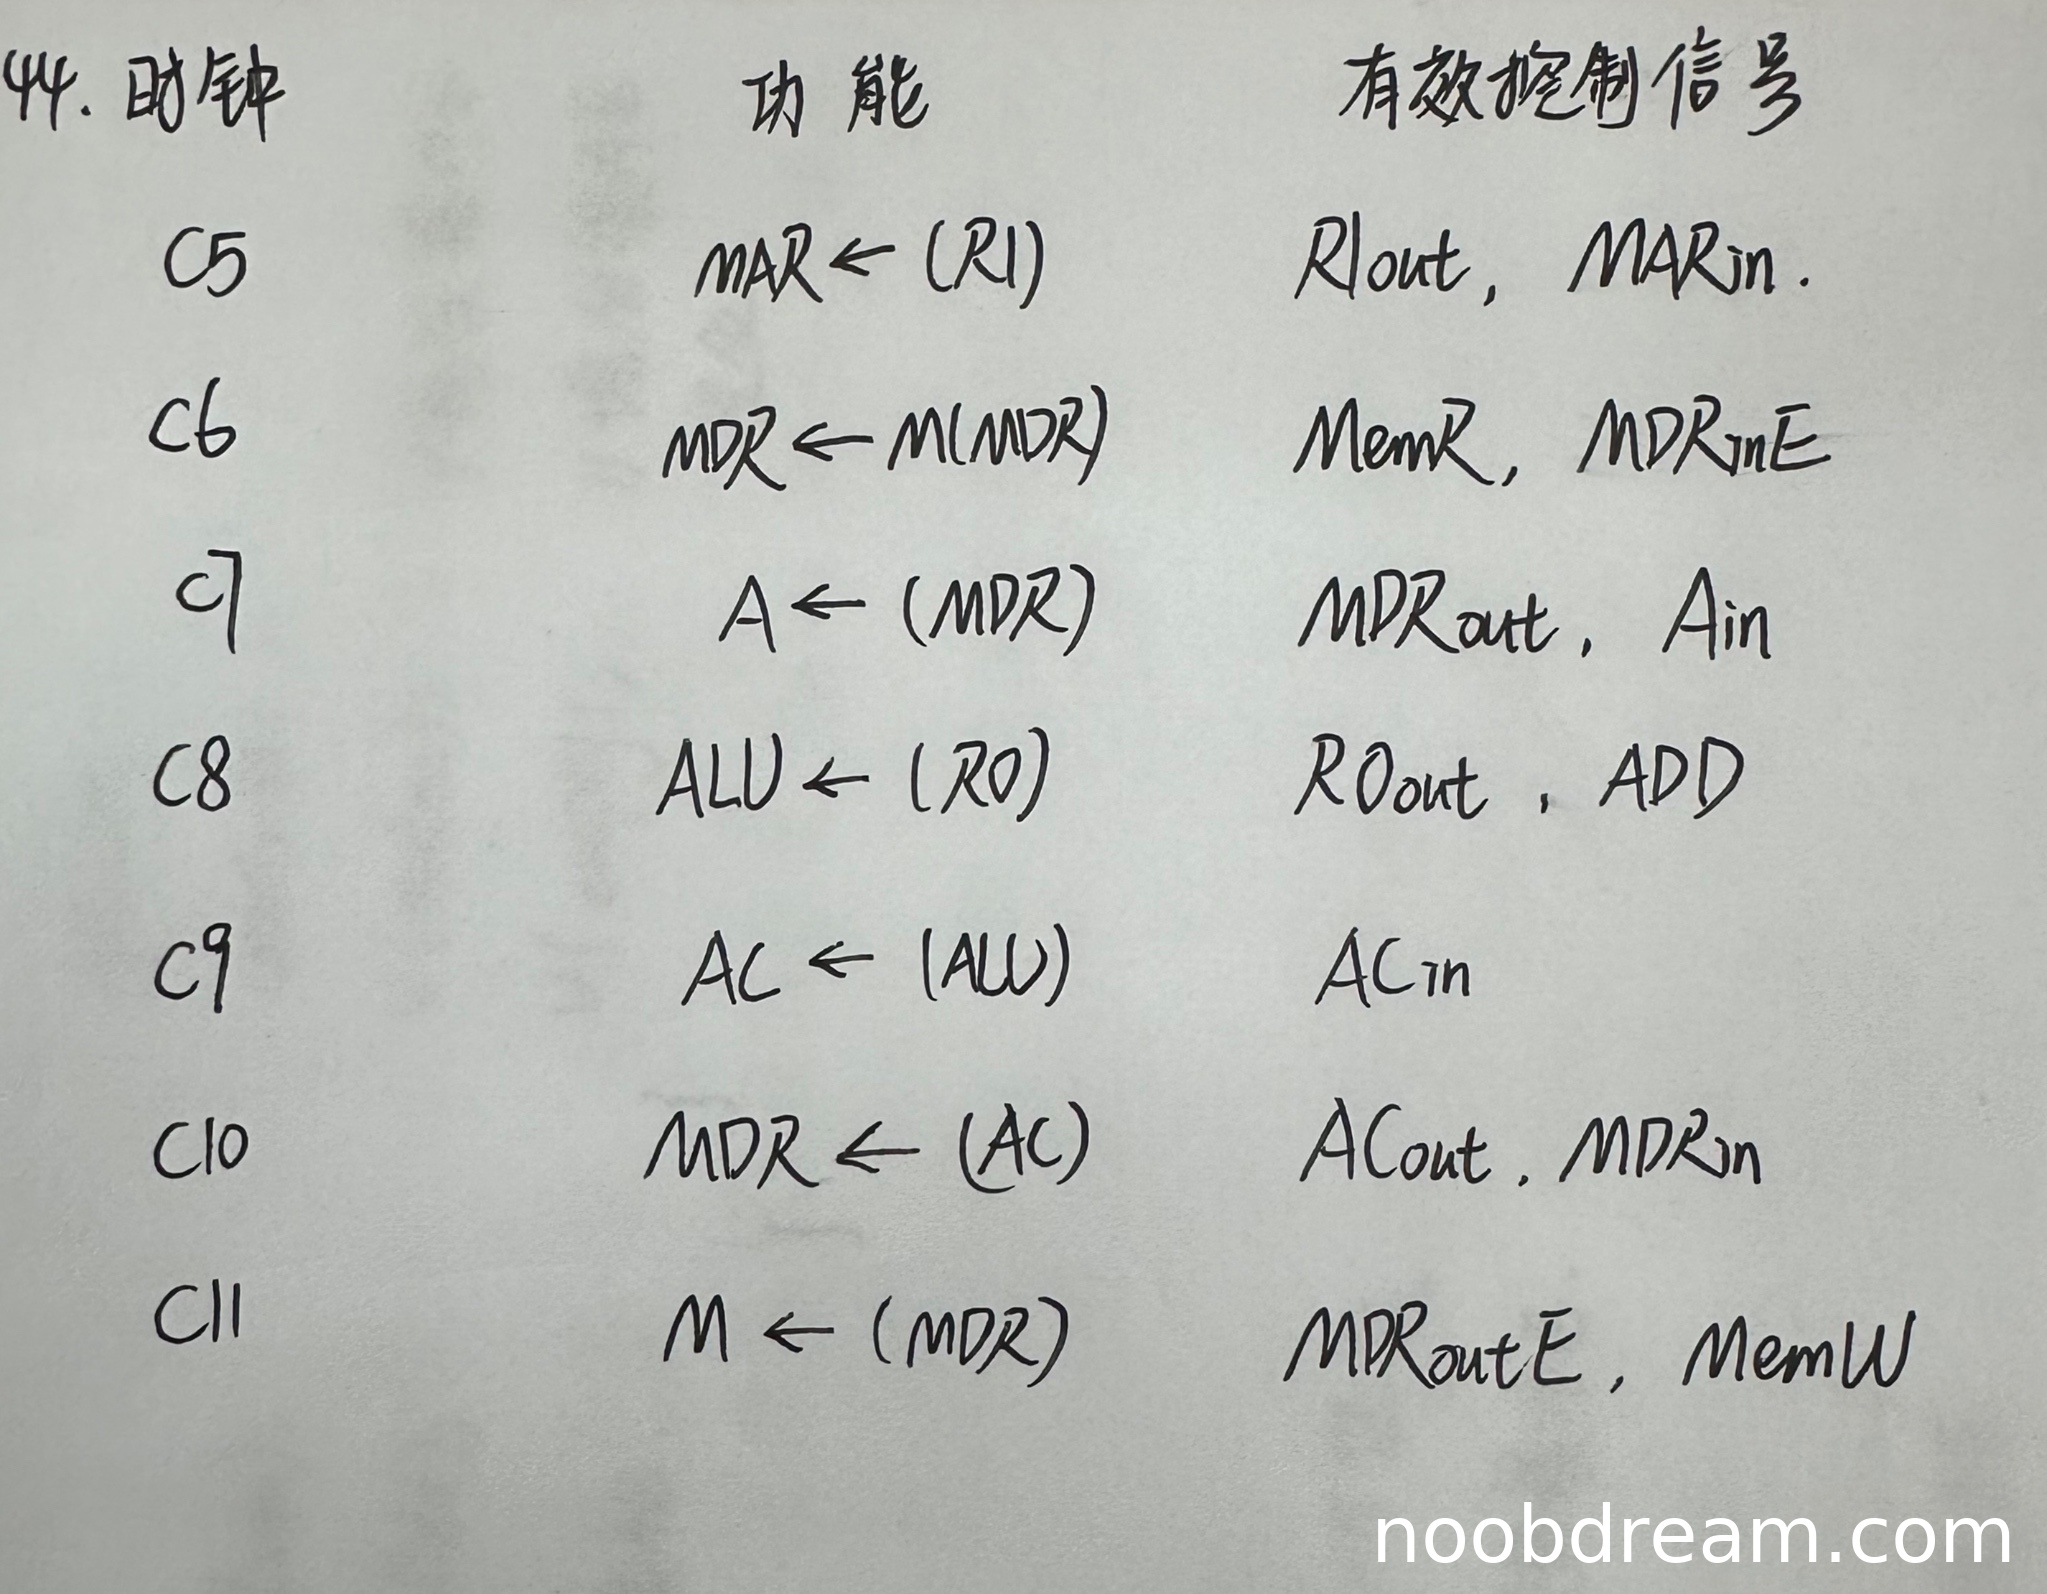 44. 时钟 功能 有效控制信号
C5 MAR ← (R1) R1out, MARin.
C6 MDR ← M(MDR) MemR, MDRinE
C7 A ← (MDR) MDRout, Ain
C8 ALU ← (R0) R0out, ADD
C9 AC ← (ALU) ACin
C10 MDR ← (AC) ACout, MDRin
C11 M ← (MDR) MDRoutE, MemW
noobdream.com